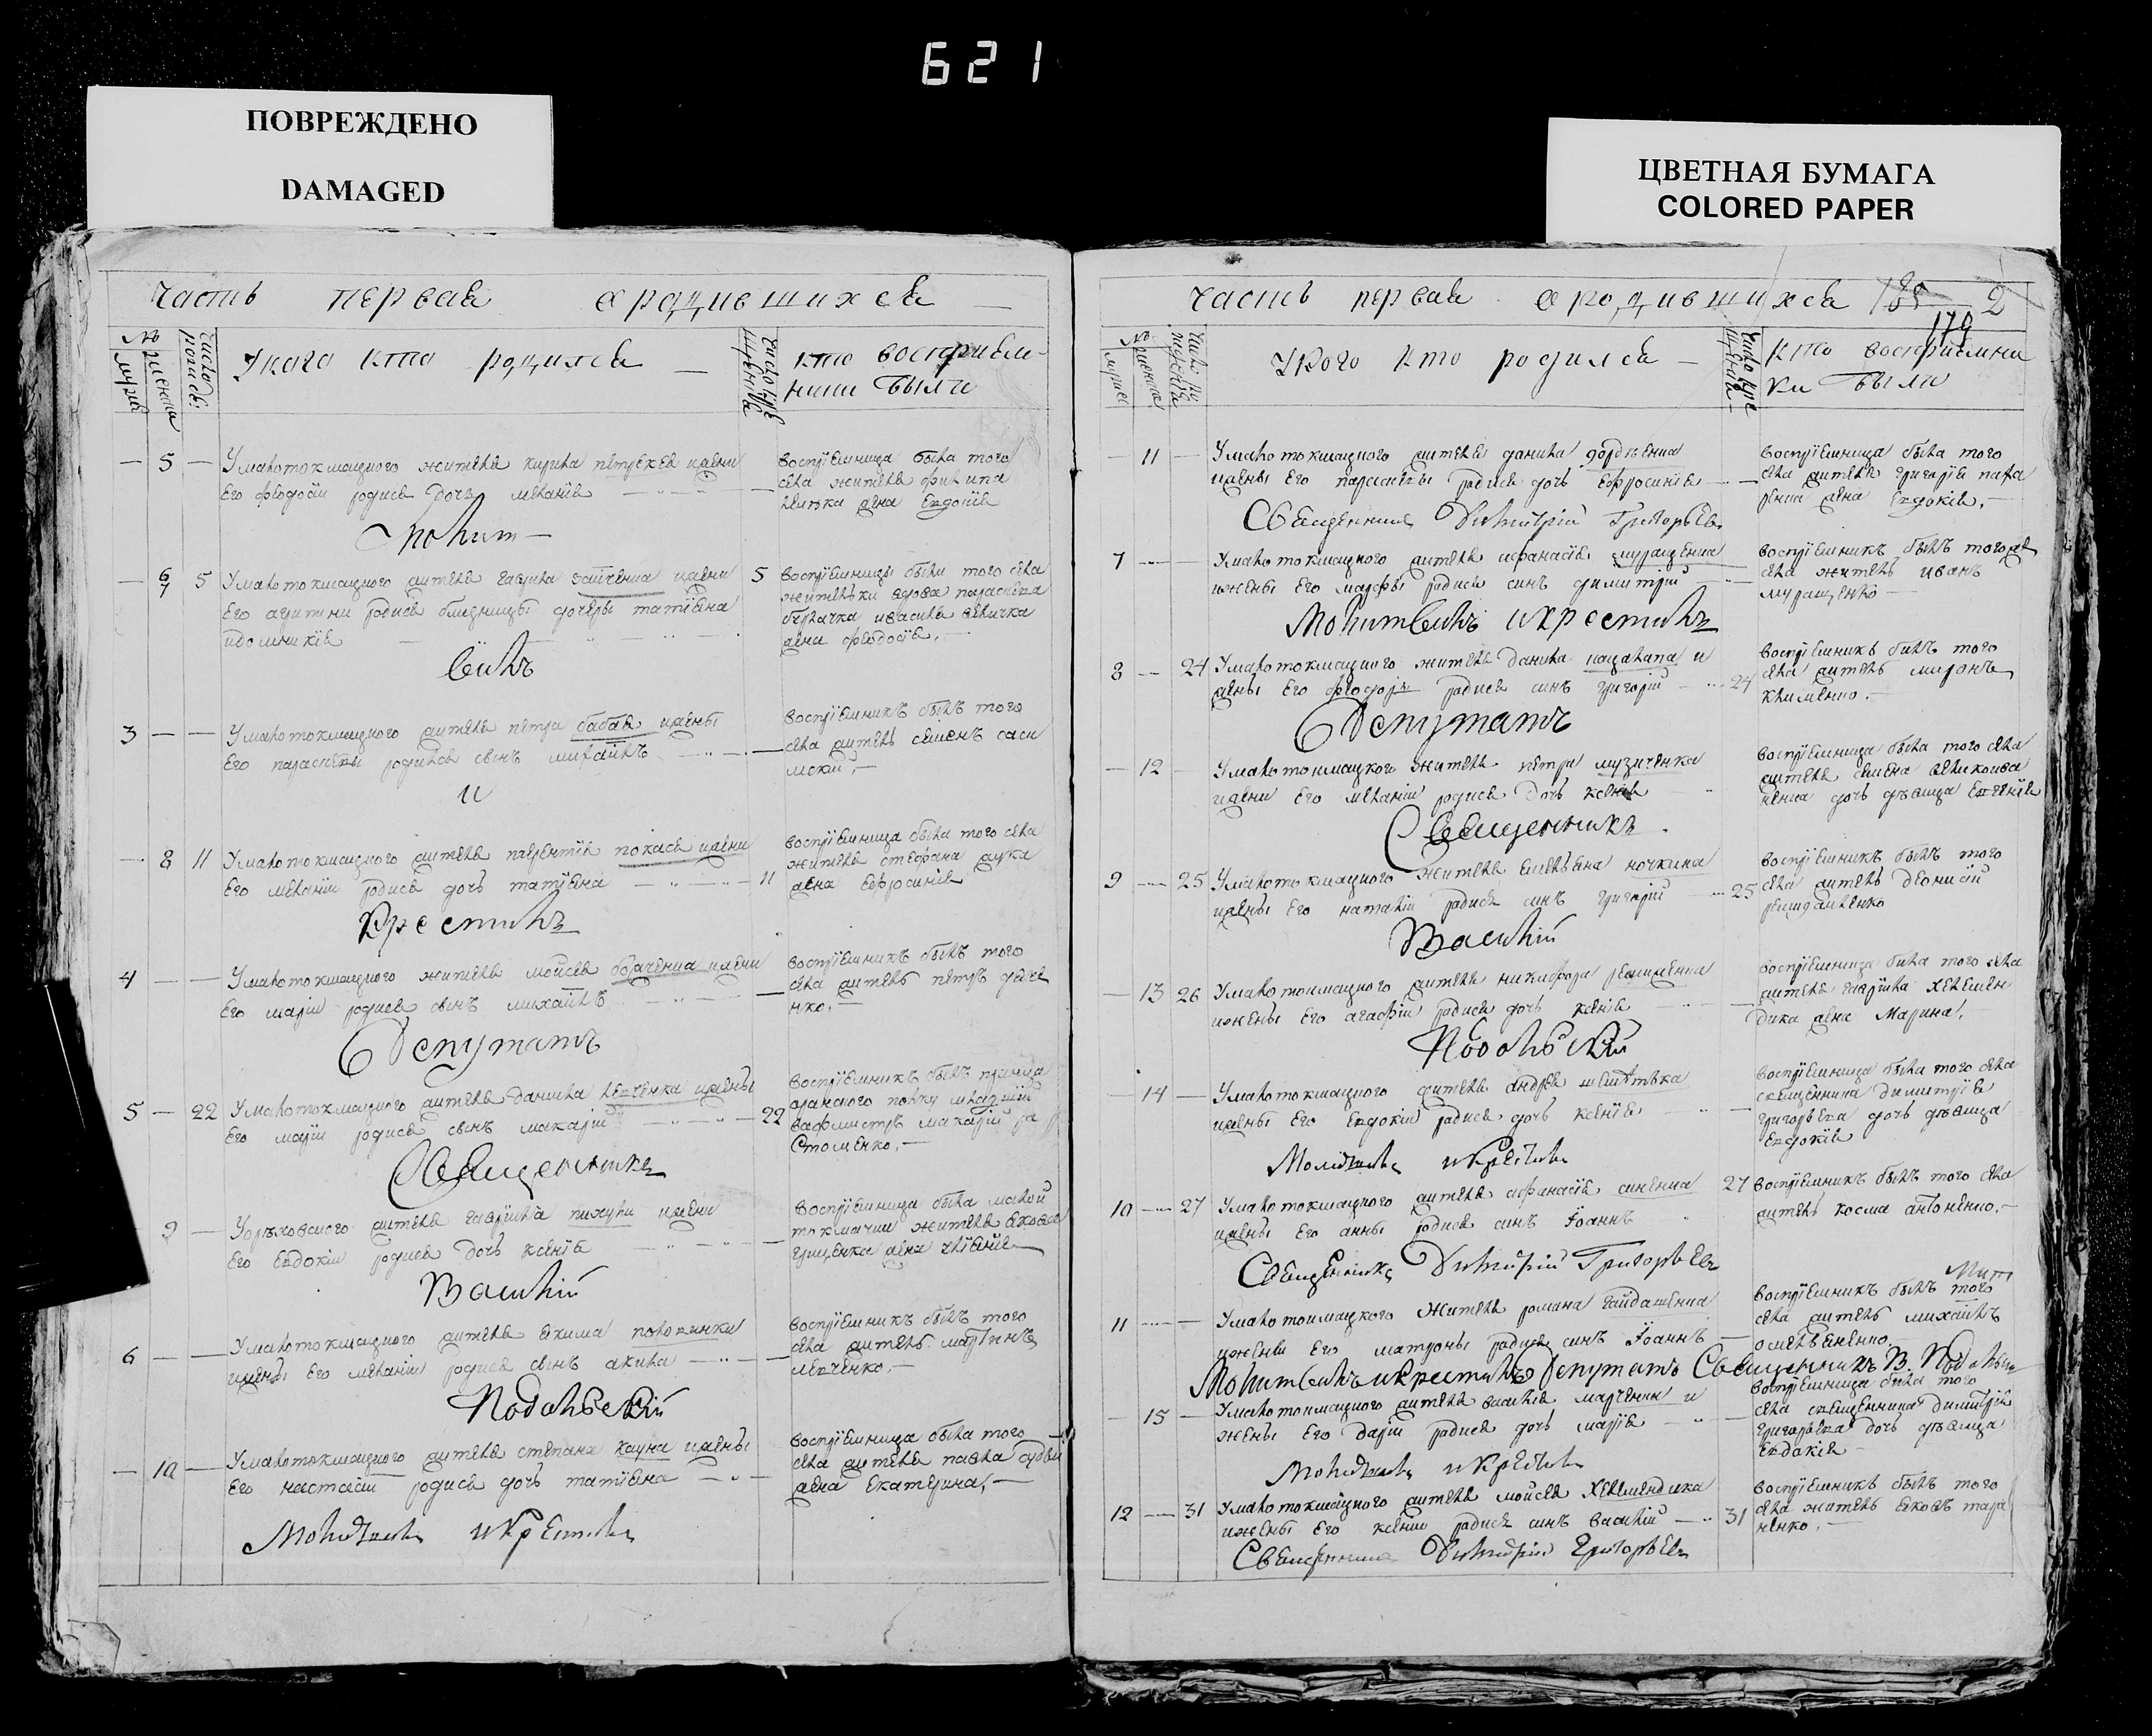 621
ПОВРЕЖДЕНО
DAMAGED
ЦВЕТНАЯ БУМАГА
COLORED PAPER
Часть первая о родившихся
№
мужеска
женска
число
У кого кто родился
число креще
кто восприем
ники были
5
У малотокмацкого жителя кирила жены
его феодосии родися дочь мелания
восприемница была того
села жителя филипа
жена Евдокия
Молит
6
7
5
У малотокмацкого жителя гаврила зайченка жены
его родися близницы дочеры татияна
и домникия
5
восприемницы были того села
жителки вдова параскева
и василя величка
жена феодосия.
виль
3
У малотокмацкого жителя петра бабая жены
его параскевы родился сынъ михаилъ
восприемникъ былъ того
села житель семенъ
и
8
11
У малотокмацкого жителя терентия покаса жены
его мелании родися дочь татияна
11
восприемница была того села
жителя стефана
жена Ефросиния
Крестилъ
4
У малотокмацкого жителя мойсея жены
его марии родися сынъ михаилъ
восприемникъ былъ того
села житель петръ
нко.
Депутатъ
5
22
У малотокмацкого жителя данила левченка жены
его марии родися сынъ макарий
22
восприемникъ былъ
полку
вафмистръ макарий
Священникъ
9
У орѣховского жителя гаврила жены
его Евдокии родися дочь ксения
восприемница была малой
токмачки жителя якова
гриценка жена
Василий
6
У малотокмацкого жителя якима половинки
жены его мелании родися сынъ акила
восприемникъ былъ того
села житель мартинъ
левченко.
Подольский
10
У малотокмацкого жителя степана кауна жены
его настасии родися дочь татияна
восприемница была того
села жителя павла
жена Екатерина,
Молитвилъ и крестилъ
Часть первая о родившихся
2
179
№
У кого кто родился
Кто восприемни
ки были
11
У малотокмацкого жителя данила
жены его параскевы родися дочь Ефросиния
восприемница была того
села жителя григория
жена Евдокия.
Священникъ Димитрий Григорьевъ
7
У малотокмацкого жителя афанасия муращенка
и жены его марфы родися синъ димитрий
восприемникъ былъ того
села житель иванъ
муращенко
Молитвилъ и крестилъ
8
24
У малотокмацкого жителя данила и
жены его феодоры родися синъ григорий
24
восприемникъ билъ того
села житель миронъ
клименко.
Депутатъ
12
У малотокмацкого жителя петра музиченка
жены его мелании родися дочь ксения
восприемница была того села
жителя семена великоива
ненка дочь дѣвица Евгения
Священникъ
9
25
У малотокмацкого жителя емелияна кочкина
жены его наталии родися синъ григорий
25
восприемникъ былъ того
села житель деонисий
Василий
13
26
У малотокмацкого жителя никифора
и жены его агафии родися дочь ксения
восприемница била того села
жителя гаврила хелемен
дика жена Марина.
Подольский
14
У малотокмацкого жителя андрея
жены его Евдокии родися дочь ксения
восприемница была того села
священника димитрия
григорьева дочь дѣвица
Евдокия
Молитвилъ и крестилъ
10
27
У малотокмацкого жителя афанасия
жены его анны родися синъ Іоаннъ
27
восприемникъ былъ того села
житель косма антоненко.
Священникъ Димитрий Григорьевъ
11
У малотокмацкого жителя романа гайдашенка
и жены его матроны родися синъ Іоаннъ
восприемникъ былъ того
села житель михаилъ
омеляненко
Молитвилъ и крестилъ Депутатъ Священникъ В. Подольский
15
У малотокмацкого жителя василия марченки и
жены его дарии родися дочь мария
восприемница была того
села священника димитрия
григорьева дочь дѣвица
Евдокия
Молитвилъ и крестилъ
12
31
У малотокмацкого жителя мойсея хелемендика
и жены его ксении родися синъ василий
31
восприемникъ былъ того
села житель яковъ тара
ненко.
Священникъ Димитрий Григорьевъ